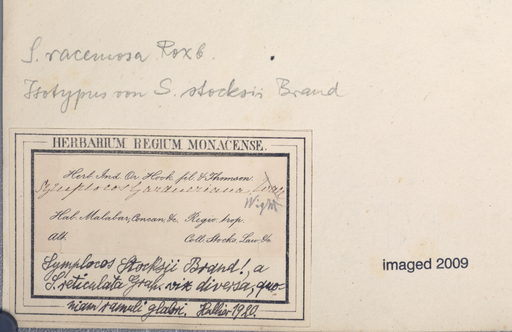 S. racemosa Roxb.
Isotypus von S. stocksii Brand
HERBARIUM REGIUM MONACENSE.
Herb. Ind. Or. Hook. fil. & Thomson.
Symplocos Gardneriana
Wight
Hab. Malabar, Concan, &c. Regio trop.
Alt. Coll. Stocks, Law, &c
Symplocos Stocksii Brand!, a
S. reticulata Grah. vix diversa, quo-
niam rameli glabri. Hallier 1920.
imaged 2009